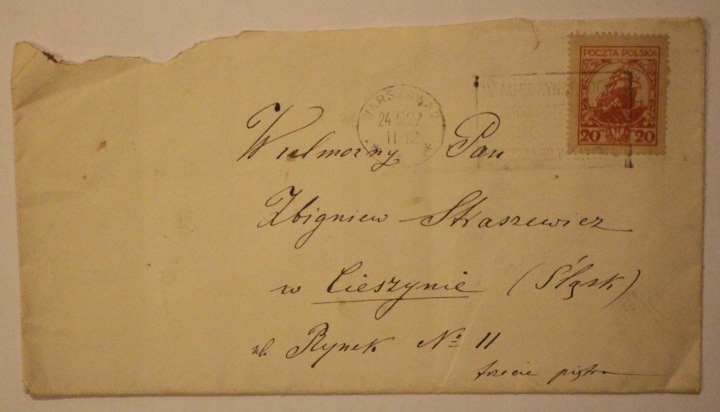 POCZTA POLSKA
20 20
WARSZAWA 2
11-12
IV MIĘDZYN
Wielmożny Pan
Zbigniew Straszewicz
w Cieszynie (Śląsk)
ul. Rynek № 11
trzecie piętro